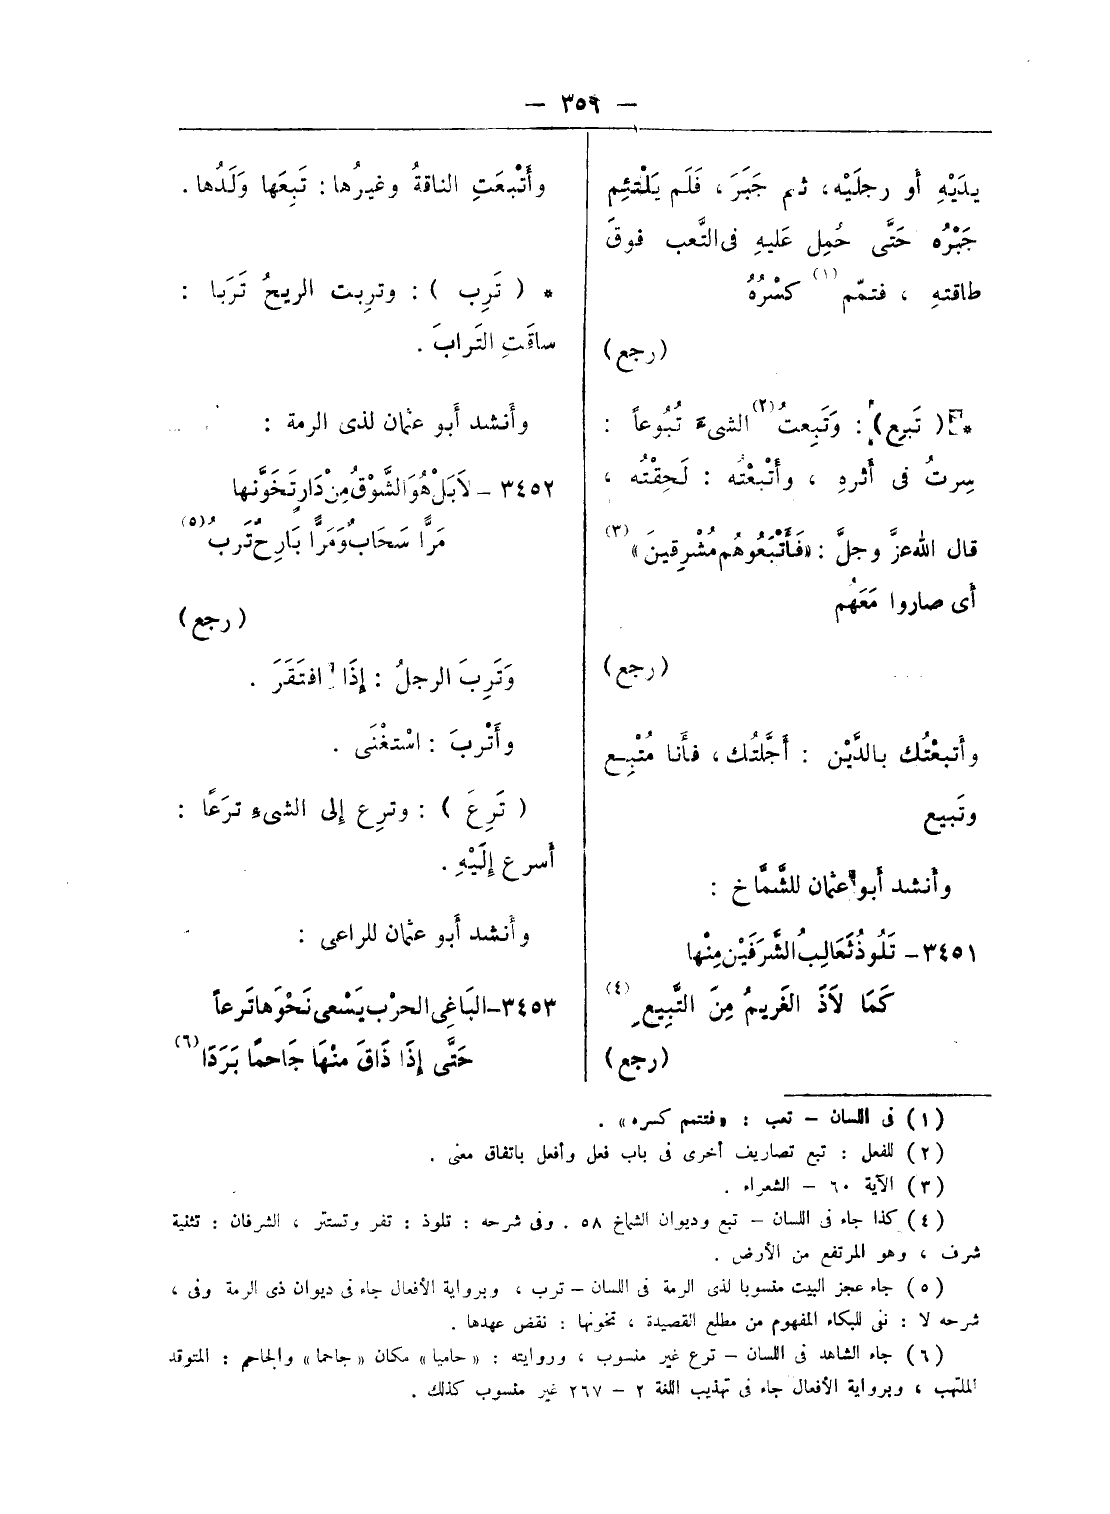 — ٣٥٩ —
يدَيْهِ أو رجلَيْه، ثم جَبَرَ، فَلَم يَلْتئِم
جَبْرُه حَتَّى حُمِل عَليهِ فى التَّعب فوقَ
طاقتهِ ، فتمّم (١) كسْرُهُ
(رجع)
* ( تَبِع ) : وَتَبِعتُ (٢) الشىءَ تُبُوعاً :
سِرتُ فى أثرهِ ، وأَتْبعْتُه : لَحِقْتُه ،
قال الله عزَّ وجلَّ : «فَأَتْبَعُوهُم مُشْرِقينَ» (٣)
أى صاروا مَعَهُم
(رجع)
وأَتبعْتُك بالدَّيْن : أَجَّلتُك ، فأَنا مُتْبِع
وتَبيع
وأنشد أبو عثمان للشَّمَّاخ :
٣٤٥١ – تَلُوذُ ثَعَالِبُ الشَّرَفَيْن مِنْها
كَمَا لاَذَ الغَريمُ مِنَ التَّبِيع (٤)
(رجع)
وأَتْبعَتِ الناقةُ وغيرُها : تَبِعَها وَلَدُها .
* ( تَرِب ) : وتربت الريحُ تَرَبا :
ساقَتِ التَرابَ .
وأنشد أبو عثمان لذى الرمة :
٣٤٥٢ – لاَ بَلْ هُوَ الشَّوْقُ مِنْ دَارٍ تَخَوَّنها
مَرًّا سَحَابٌ وَمَرًّا بَارِحٌ تَرِبُ (٥)
(رجع)
وَتَرِبَ الرجلُ : إِذَا افتَقَرَ .
وأَتْربَ : اسْتغْنَى .
( تَرِعَ ) : وترِع إلى الشىءِ ترَعًا :
أسرع إِلَيْهِ .
وأَنشد أبو عثمان للراعى :
٣٤٥٣ – البَاغِى الحرْب يَسْعى نَحْوَها تَرعاً
حَتَّى إِذَا ذَاقَ منْهَا جَاحمًا بَرَدَا (٦)
(١) فى اللسان – تعب : «فتتمم كسره» .
(٢) للفعل : تبع تصاريف أخرى فى باب فعل وأفعل باتفاق معنى .
(٣) الآية ٦٠ – الشعراء .
(٤) كذا جاء فى اللسان – تبع وديوان الشماخ ٥٨ . وفى شرحه : تلوذ : تفر وتستتر ، الشرفان : تثنية
شرف ، وهو المرتفع من الأرض .
(٥) جاء عجز البيت منسوبا لذى الرمة فى اللسان – ترب ، وبرواية الأفعال جاء فى ديوان ذى الرمة وفى ،
شرحه لا : ننى للبكاء المفهوم من مطلع القصيدة ، تخونها : نقض عهدها .
(٦) جاء الشاهد فى اللسان – ترع غير منسوب ، وروايته : «حاميا» مكان «جاحما» والجاحم : المتوقد
الملتهب ، وبرواية الأفعال جاء فى تهذيب اللغة ٢ – ٢٦٧ غير منسوب كذلك .